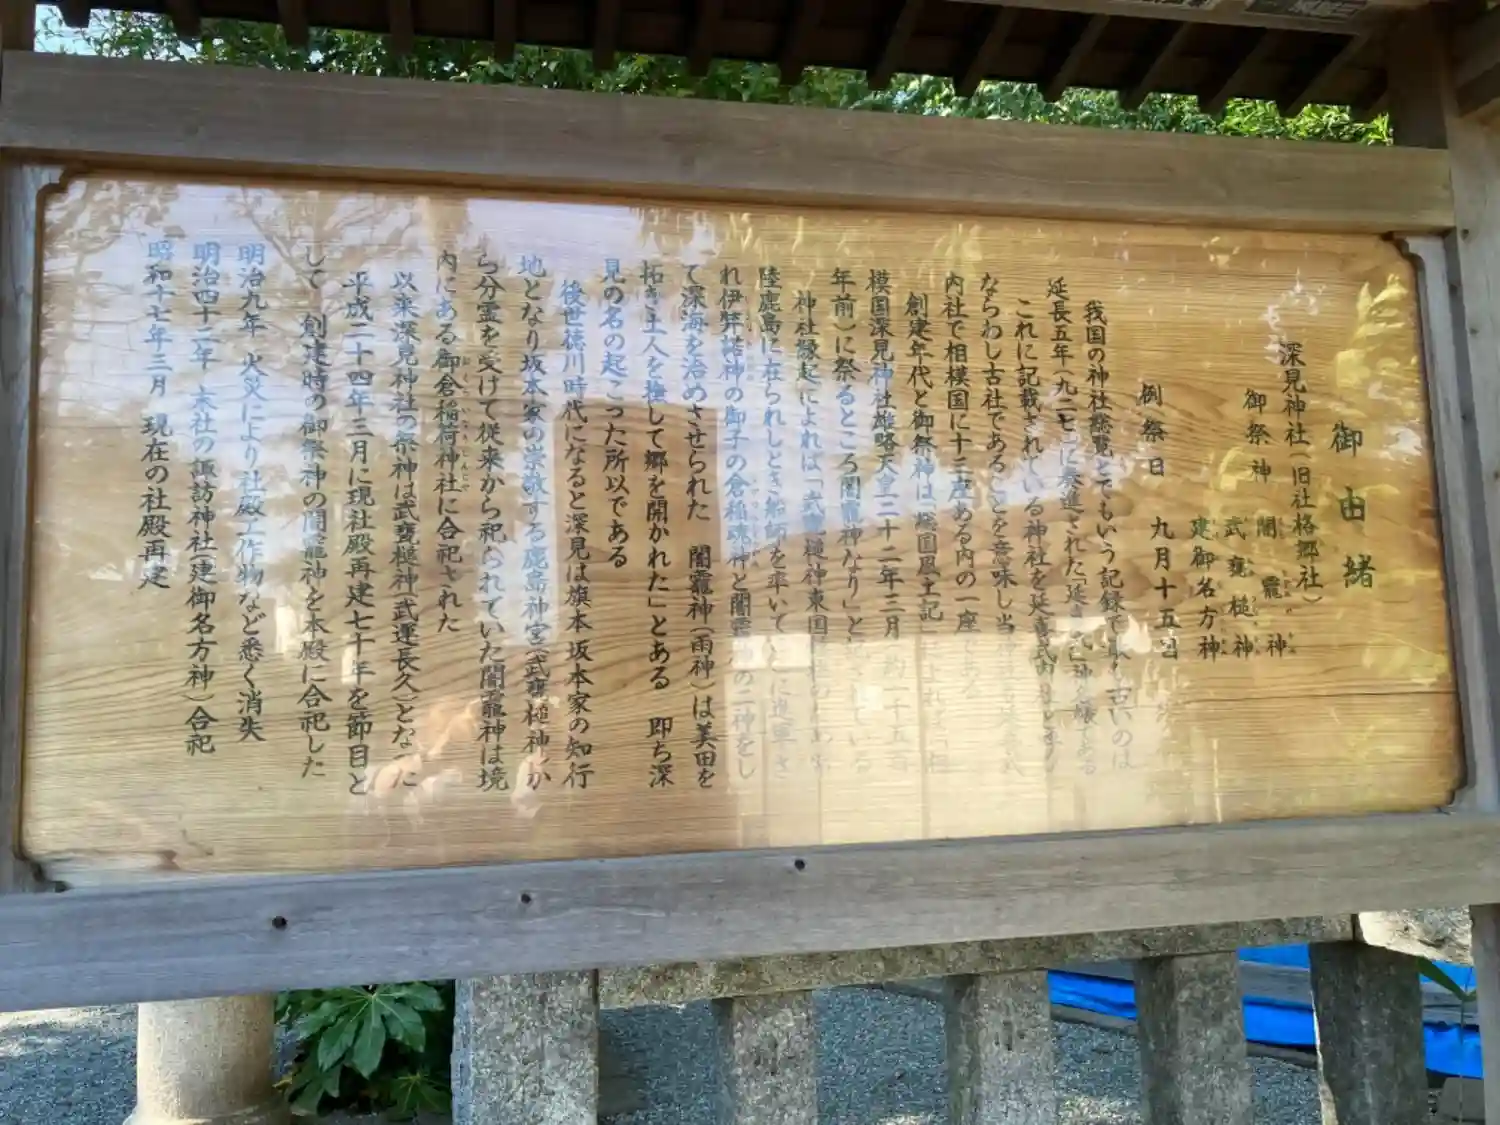 御由緒
深見神社(旧社格郷社)
御祭神 闇龗神
武甕槌神
建御名方神
例祭日 九月十五日
我国の神社総覧とでもいう記録で最も古いのは
延長五年(九二七)に奏進された「延喜式」神名帳である
これに記載されている神社を延喜式内社と
ならわし古社であることを意味し当
内社で相模国に十三座ある内の一座
創建年代と御祭神は「総国風土記
模国深見神社雄略天皇二十二年三月
年前)に祭るところ闇龗神なり」と
神社縁起によれば「武甕槌神東国
陸鹿島に在られしとき船師を率いて に進軍さ
れ伊弉諾神の御子の倉稲魂神と闇龗神の二神をし
て深海を治めさせられた 闇龗神(雨神)は美田を
拓き土人を撫して郷を開かれた」とある 即ち深
見の名の起こった所以である
後世徳川時代になると深見は旗本坂本家の知行
地となり坂本家の崇敬する鹿島神宮(武甕槌神)か
ら分霊を受けて従来から祀られていた闇龗神は境
内にある御倉稲荷神社に合祀された
以来深見神社の祭神は武甕槌神(武運長久)となった
平成二十四年三月に現社殿再建七十年を節目と
して 創建時の御祭神の闇龗神を本殿に合祀した
明治九年 火災により社殿工作物など悉く消失
明治四十二年 末社の諏訪神社(建御名方神)合祀
昭和十七年三月 現在の社殿再建